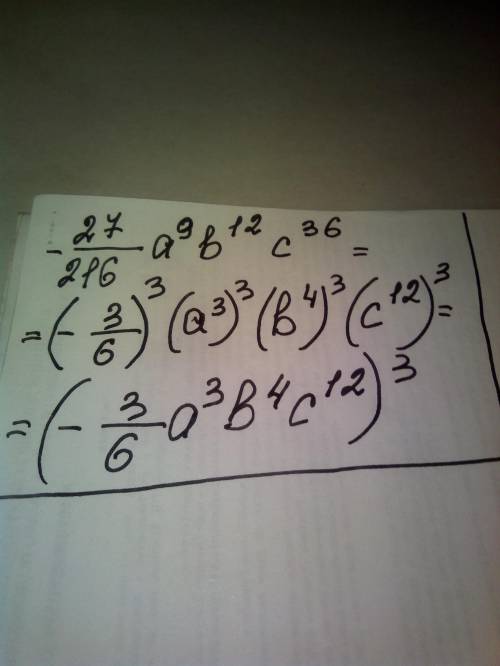 -27/216 a⁹b¹² c³⁶ =
= (-3/6)³ (a³)³ (b⁴)³ (c¹²)³ =
= (-3/6 a³b⁴c¹²)³